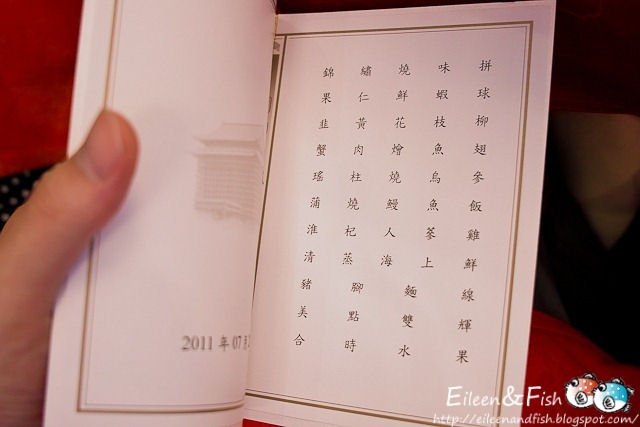 錦繡燒味拼
果仁鮮蝦球
韭黃花枝柳
蟹肉燴魚翅
瑤柱燒烏參
蒲燒鰻魚飯
淮杞人蔘雞
清蒸海上鮮
豬腳麵線
美點雙輝
合時水果
2011 年 07 月
Eileen&Fish
http://eileenandfish.blogspot.com/